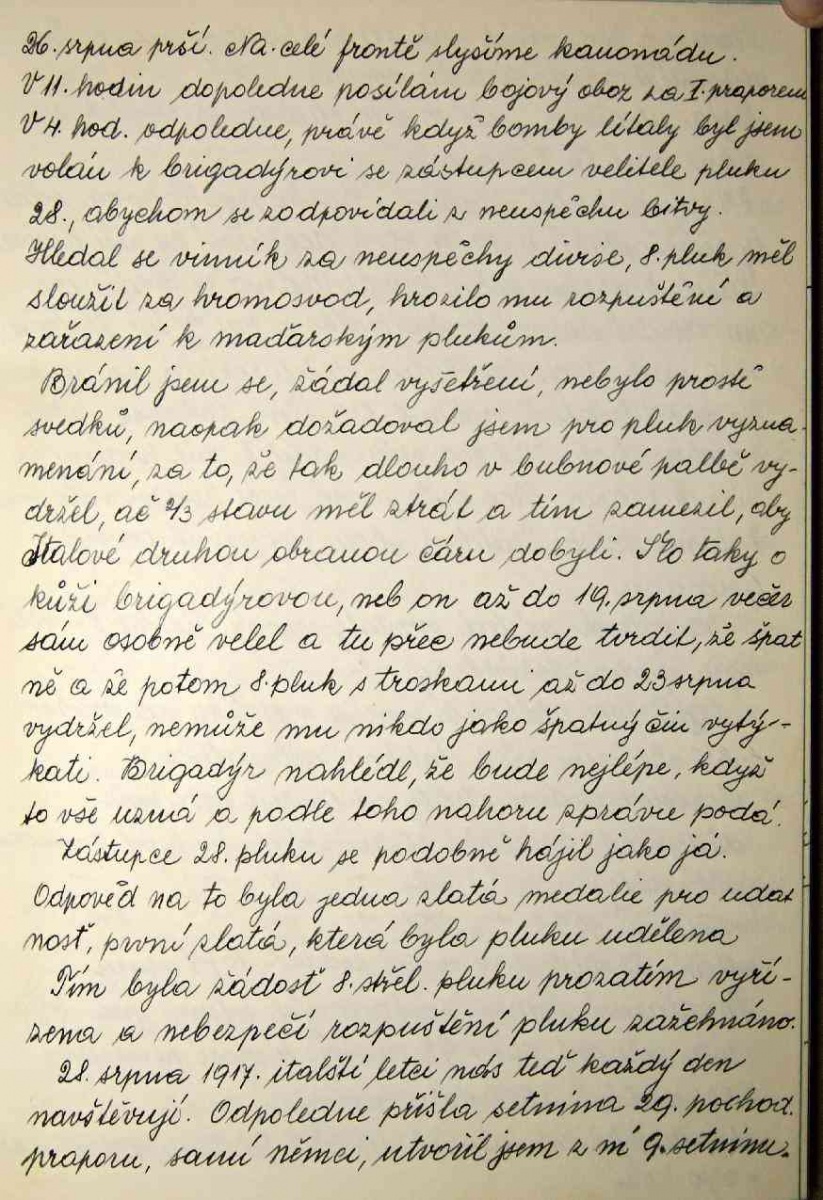 26. srpna prší. Na celé frontě slyšíme kanonádu.
V 11. hodin dopoledne posílám bojový oboz za I. praporem
V 4. hod. odpoledne, právě když bomby lítaly byl jsem
volán k brigadýrovi se zástupcem velitele pluku
28., abychom se zodpovídali z neuspěchu bitvy.
Hledal se vinník za neuspěchy divise, 8. pluk měl
sloužit za hromosvod, hrozilo mu rozpuštění a
zařazení k maďarským plukům.
Bránil jsem se, žádal vyšetření, nebylo prostě
svedků, naopak dožadoval jsem pro pluk vyzna-
menání, za to, že tak dlouho v bubnové palbě vy-
držel, ač 2/3 stavu měl ztrát a tím zamezil, aby
Italové druhou obranou čáru dobyli. Šlo taky o
kůži brigadýrovou, neb on až do 19. srpna večer
sám osobně velel a tu přec nebude tvrdit, že špat
ně a že potom 8. pluk s troskami až do 23 srpna
vydržel, nemůže mu nikdo jako špatný čin vytý-
kati. Brigadýr nahlédl, že bude nejlépe, když
to vše uzná a podle toho nahoru zprávu podá.
Zástupce 28. pluku se podobně hájil jako já.
Odpověd na to byla jedna zlatá medalie pro udat
nosť, první zlatá, která byla pluku udělena
Tím byla žádosť 8. střel. pluku prozatím vyří-
zena a nebezpečí rozpuštění pluku zažehnáno.
28. srpna 1917. italští letci nás teď každý den
navštěvují. Odpoledne přišla setnina 29. pochod.
praporu, samí němci, utvořil jsem z ní 9. setninu.